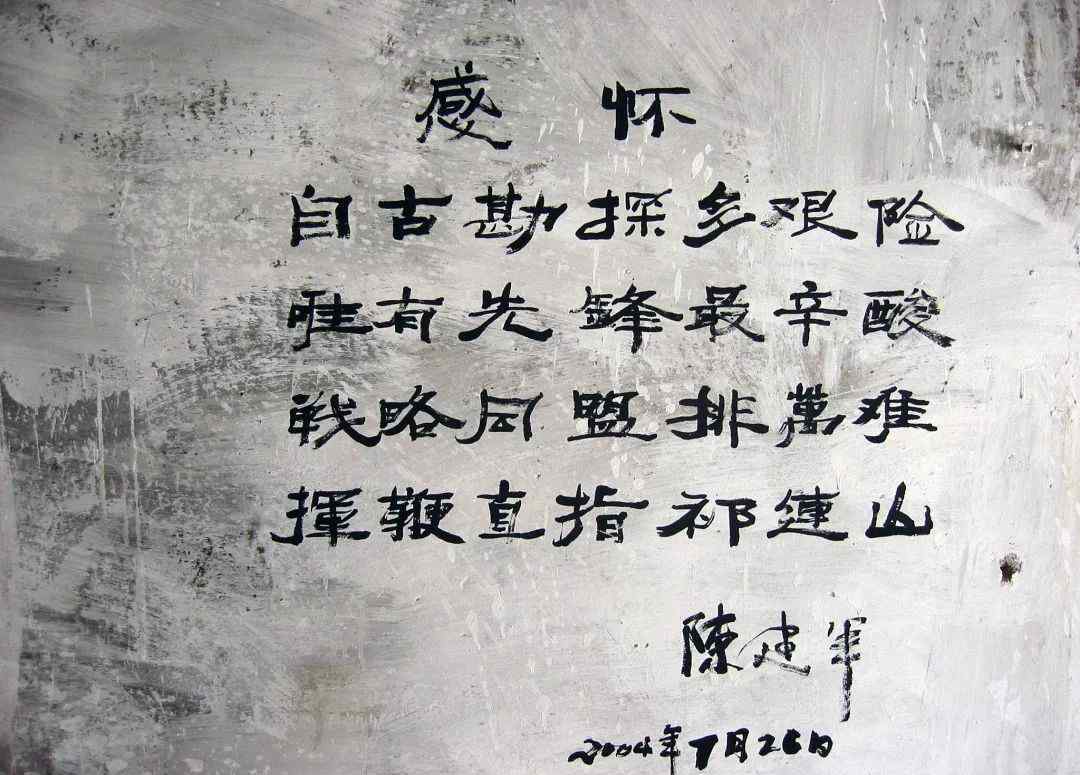 感怀
自古勘探多艰险
唯有先鋒最辛酸
战略同盟排萬难
揮鞭直指祁連山
陳建军
2004年7月26日